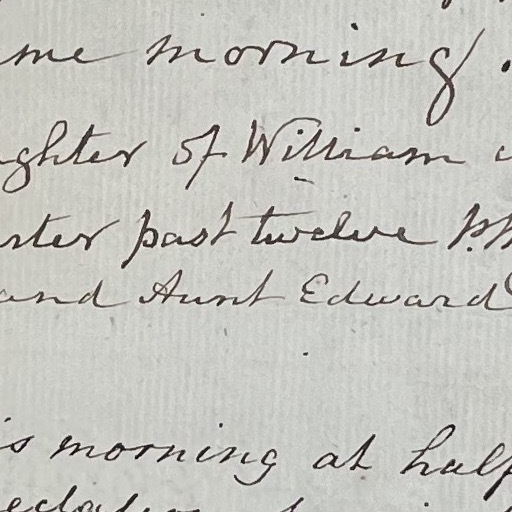 me morning.
ghter of William
rter past twelve P.
and Aunt Edward
is morning at half